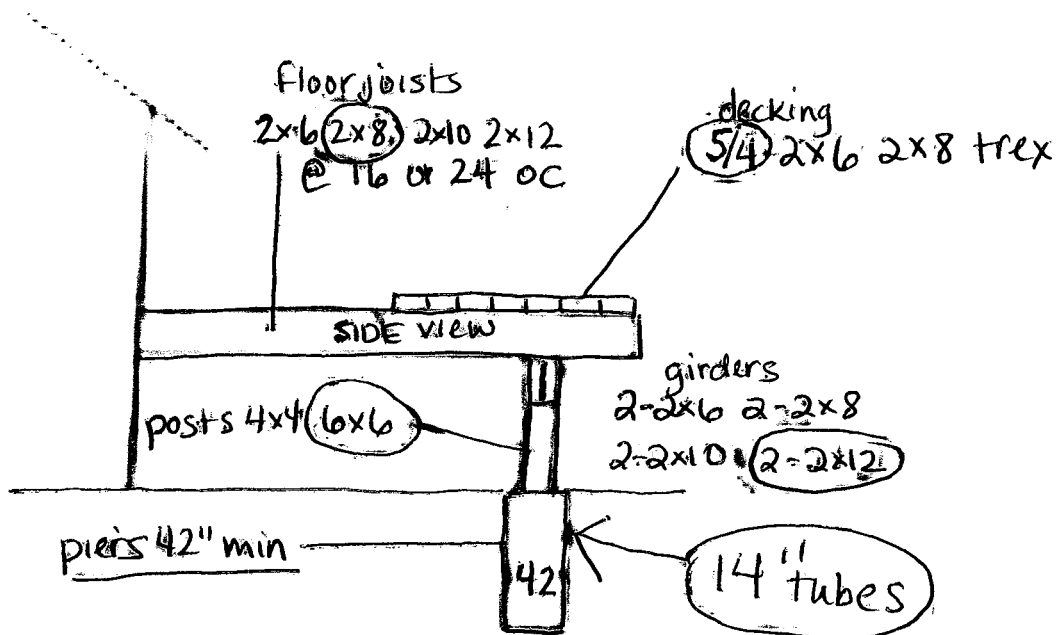 floor joists
2x6 2x8 2x10 2x12
@ 16 or 24 OC
decking
5/4 2x6 2x8 trex
SIDE VIEW
girders
2-2x6 2-2x8
2-2x10 2-2x12
posts 4x4 6x6
piers 42" min
42
14" tubes